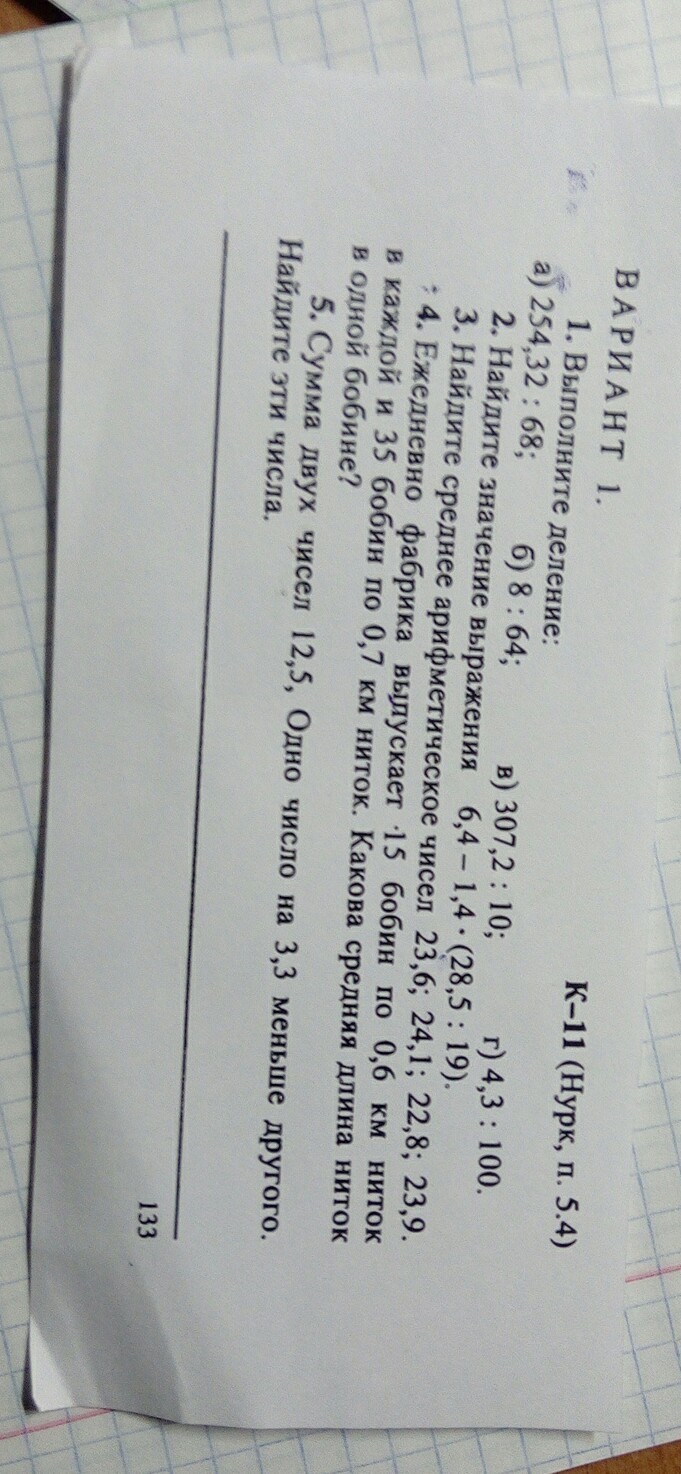 ВАРИАНТ 1.
К–11 (Нурк, п. 5.4)
1. Выполните деление:
а) 254,32 : 68; б) 8 : 64; в) 307,2 : 10; г) 4,3 : 100.
2. Найдите значение выражения 6,4 – 1,4 · (28,5 : 19).
3. Найдите среднее арифметическое чисел 23,6; 24,1; 22,8; 23,9.
4. Ежедневно фабрика выпускает 15 бобин по 0,6 км ниток
в каждой и 35 бобин по 0,7 км ниток. Какова средняя длина ниток
в одной бобине?
5. Сумма двух чисел 12,5, Одно число на 3,3 меньше другого.
Найдите эти числа.
133